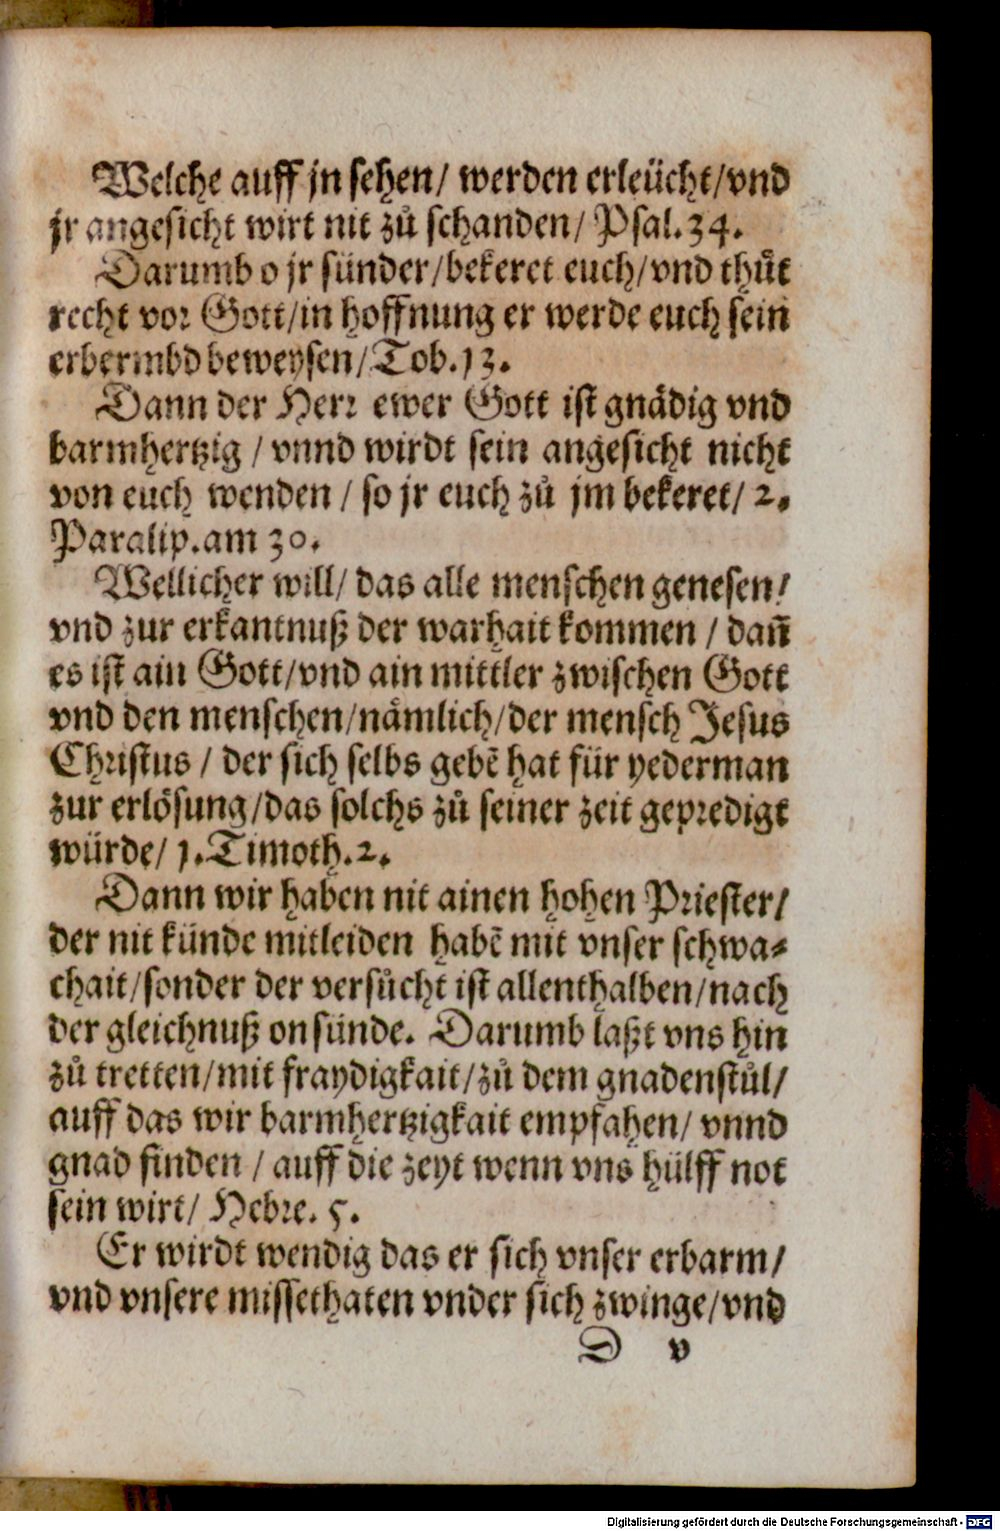 Welche auff jn sehen/ werden erleücht/vnd
jr angesicht wirt nit zů schanden/ Psal.34.
Darumb o jr sünder/bekeret euch/vnd thůt
recht vor Gott/in hoffnung er werde euch sein
erbermbd beweysen/Tob.13.
Dann der Herr ewer Gott ist gnädig vnd
barmhertzig / vnnd wirdt sein angesicht nicht
von euch wenden / so jr euch zů jm bekeret/ 2.
Paralip.am 30.
Wellicher will/ das alle menschen genesen/
vnd zur erkantnuß der warhait kommen / dañ
es ist ain Gott/vnd ain mittler zwischen Gott
vnd den menschen/nämlich/der mensch Jesus
Christus / der sich selbs gebẽ hat für yederman
zur erlösung/das solchs zů seiner zeit gepredigt
würde/ 1.Timoth.2.
Dann wir haben nit ainen hohen Priester/
der nit künde mitleiden habẽ mit vnser schwa-
chait/sonder der versůcht ist allenthalben/nach
der gleichnuß on sünde. Darumb laßt vns hin
zů tretten/mit fraydigkait/zů dem gnadenstůl/
auff das wir barmhertzigkait empfahen/ vnnd
gnad finden / auff die zeyt wenn vns hülff not
sein wirt/ Hebre. 5.
Er wirdt wendig das er sich vnser erbarm/
vnd vnsere missethaten vnder sich zwinge/vnd
D v
Digitalisierung gefördert durch die Deutsche Forschungsgemeinschaft - DFG